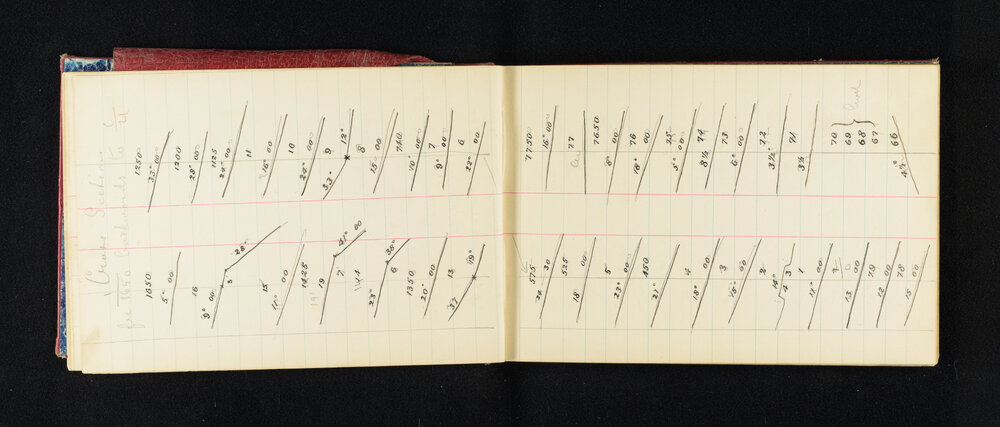 to
backwards to
1650
5° 00
16
9° 00 3° 28°
15
11° 00
1425
19
7 41° 00
23° 6 35°
1350
20° 00
13
37 19°
1250
33° 00
1200
28° 00
1125
24° 00
11
16° 00
10
24° 00
9
33° 12°
8
15° 00
750
10° 00
7
9° 00
6
22° 00
575
24 30
525
18 00
5
23° 00
450
21° 00
4
18° 00
3
15° 00
2
14°
4 3
1
11° 00
13 00
79
12 00
78
15 00
7750
16° 00
77
7650
8° 00
76
18° 00
75
5° 00
74
8½
73
6° 00
72
3½°
71
3½
70
69
68
67
level
66
4½°